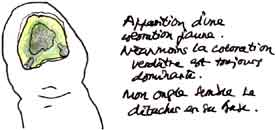 Apparition d'une
coloration jaune.
Néanmoins la coloration
verdâtre est toujours
dominante.
Mon ongle semble se
détacher en sa base.